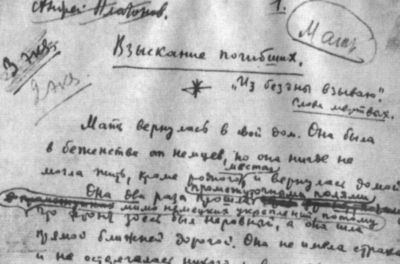 Андрей Платонов.
1.
Мать
3 экз
2 экз.
Взыскание погибших.
"Из бездны взываю".
Слова мертвых.
Мать вернулась в свой дом. Она была
в беженстве от немцев, но она нигде не
могла жить, кроме родного места, и вернулась домой
Она два раза прошла промежуточными полями
мимо немецких укреплений, потому
что фронт здесь был неровный, а она шла
прямой ближней дорогой. Она не имела страха
и не остерегалась никого